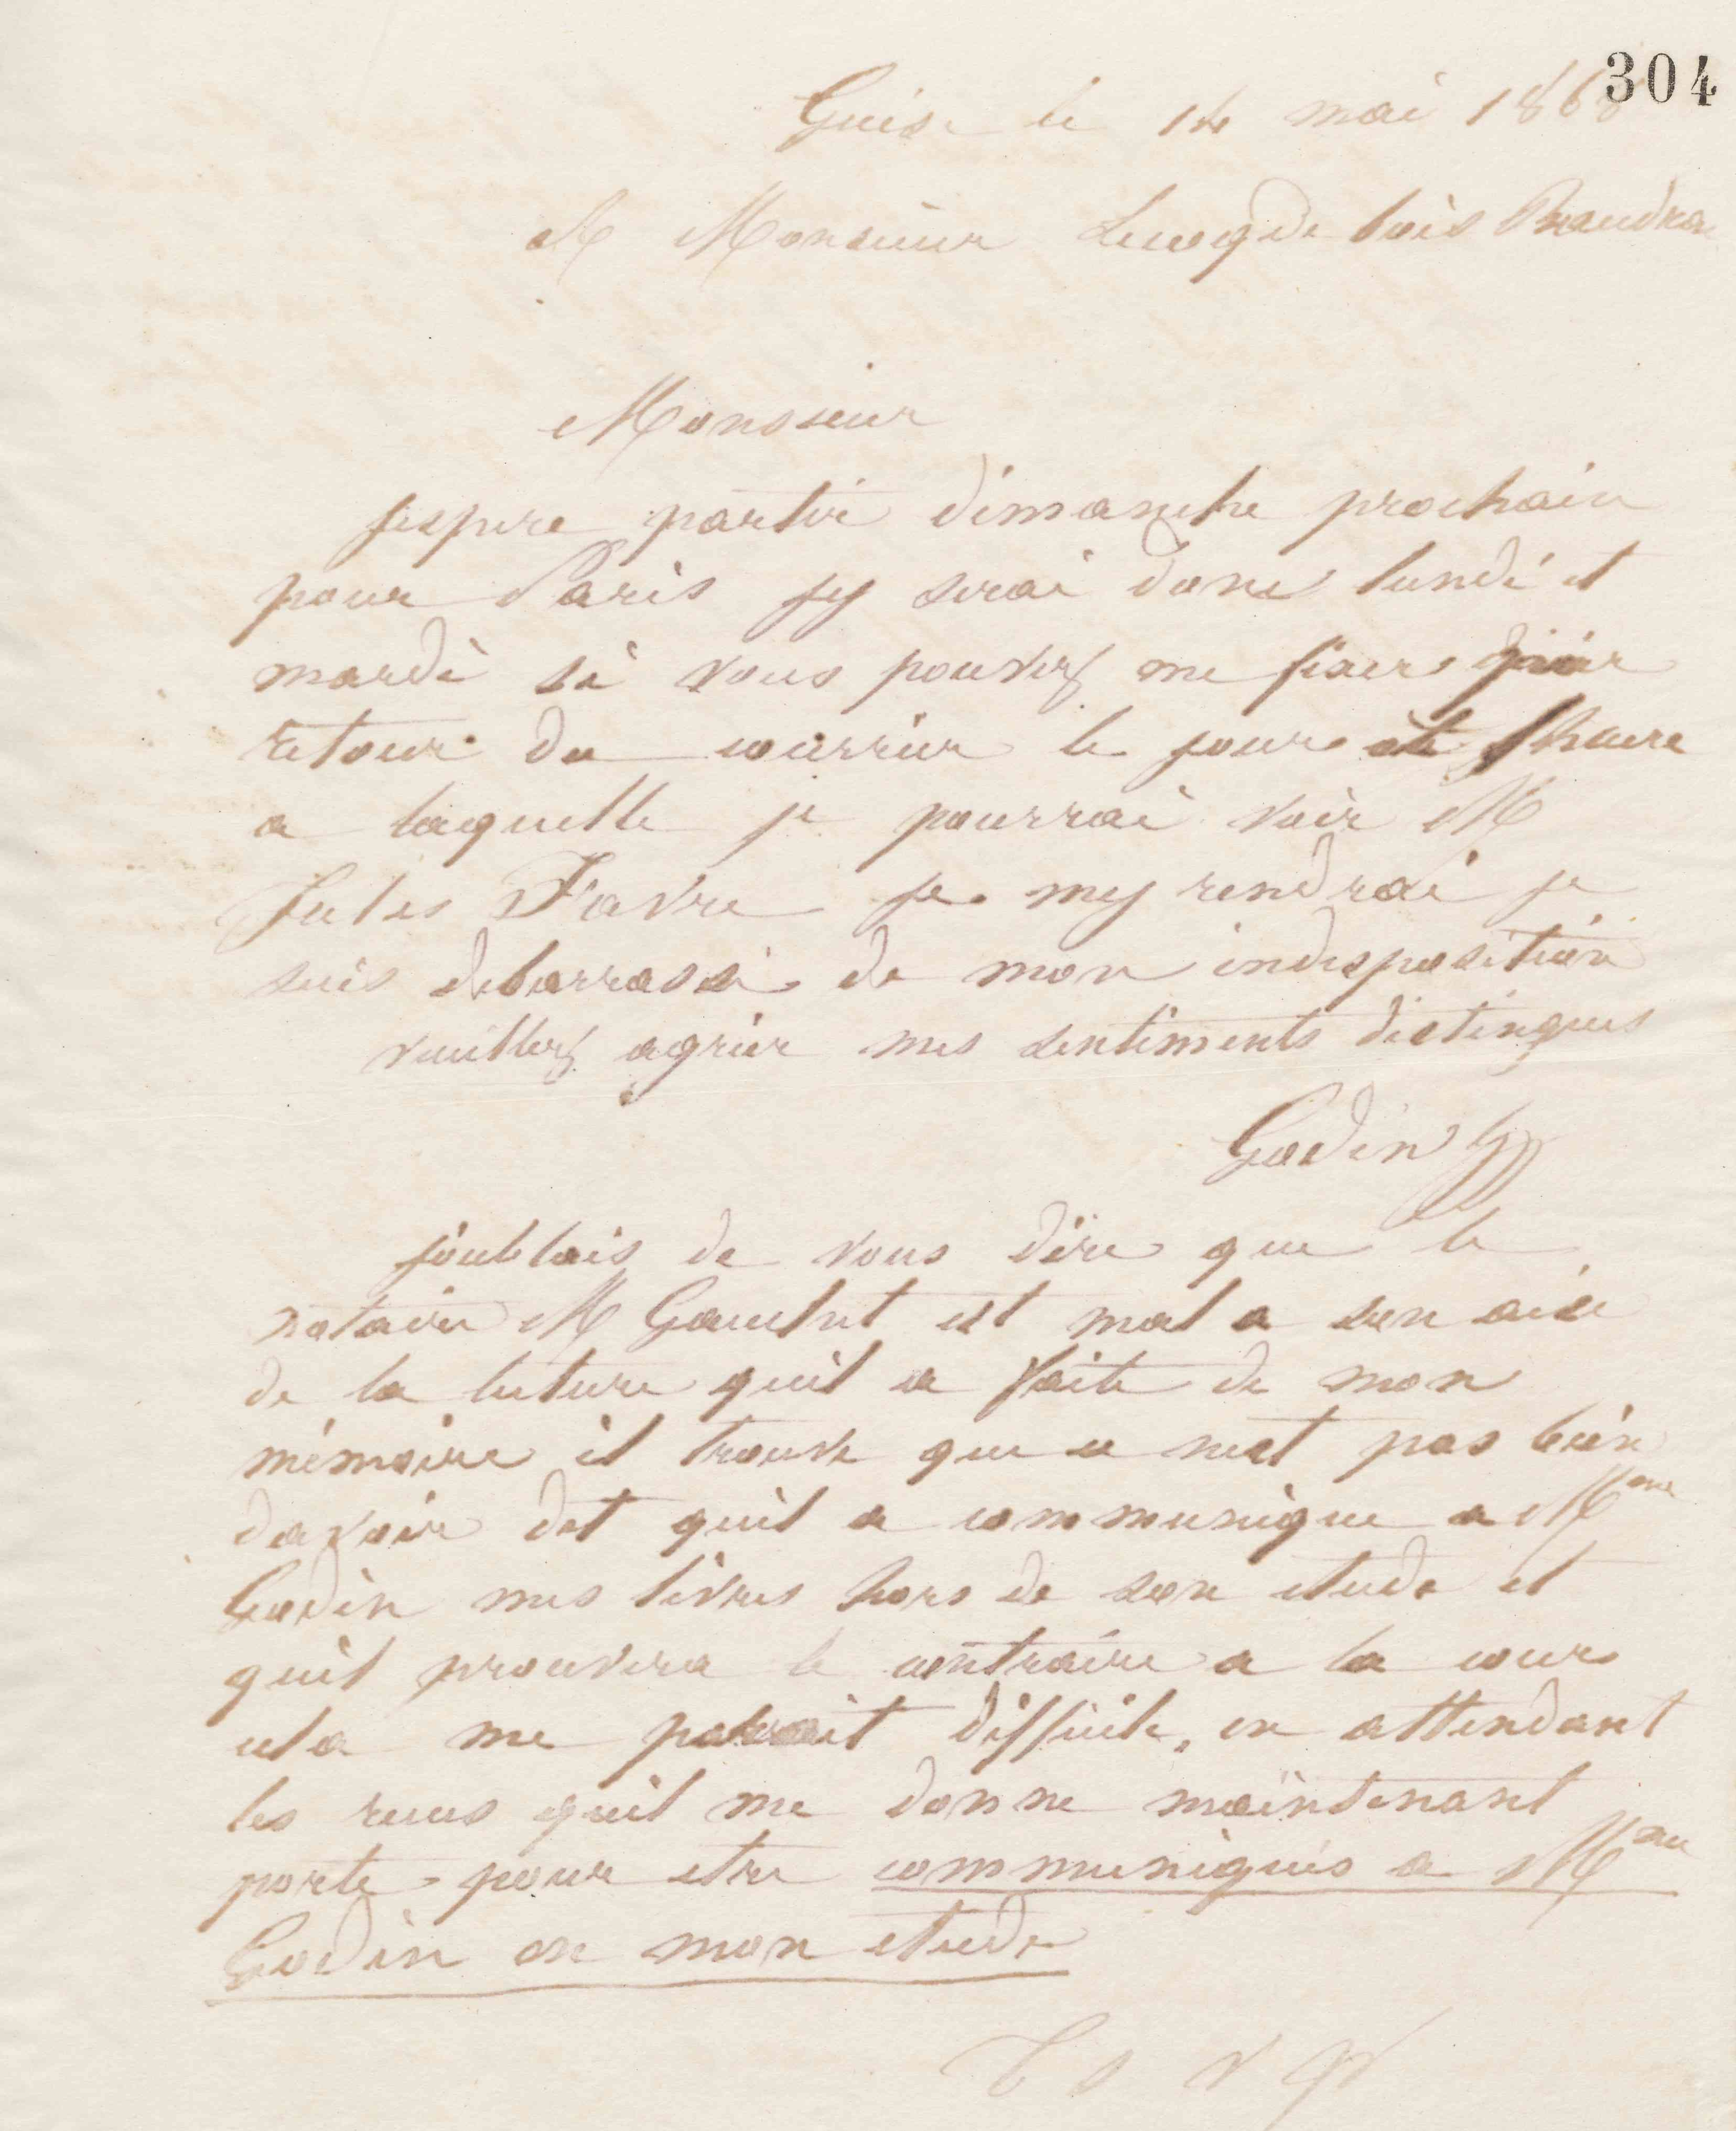 304
Guise le 14 mai 186
A Monsieur Lecoq de bois Baudran
Monsieur
jespere partir dimanche prochain
pour Paris jy serai donc lundi et
mardi si vous pouvez me fixer par
retour du courrier le jour et lheure
a laquelle je pourrai voir M
Jules Favre je my rendrai je
suis debarrassé de mon indisposition
veuillez agréer mes sentiments distingues
Godin
joubliais de vous dire que le
notaire M est mal a son aise
de la lecture quil a faite de mon
mémoire il trouve que ce nest pas bien
davoir dit quil a communique a Mme
Godin mes livres hors de son etude et
quil prouvera le contraire a la cour
cela me parait difficile, en attendant
les recus quil me donne maintenant
porte pour etre communiqués a Mme
Godin en mon etude
T S V P